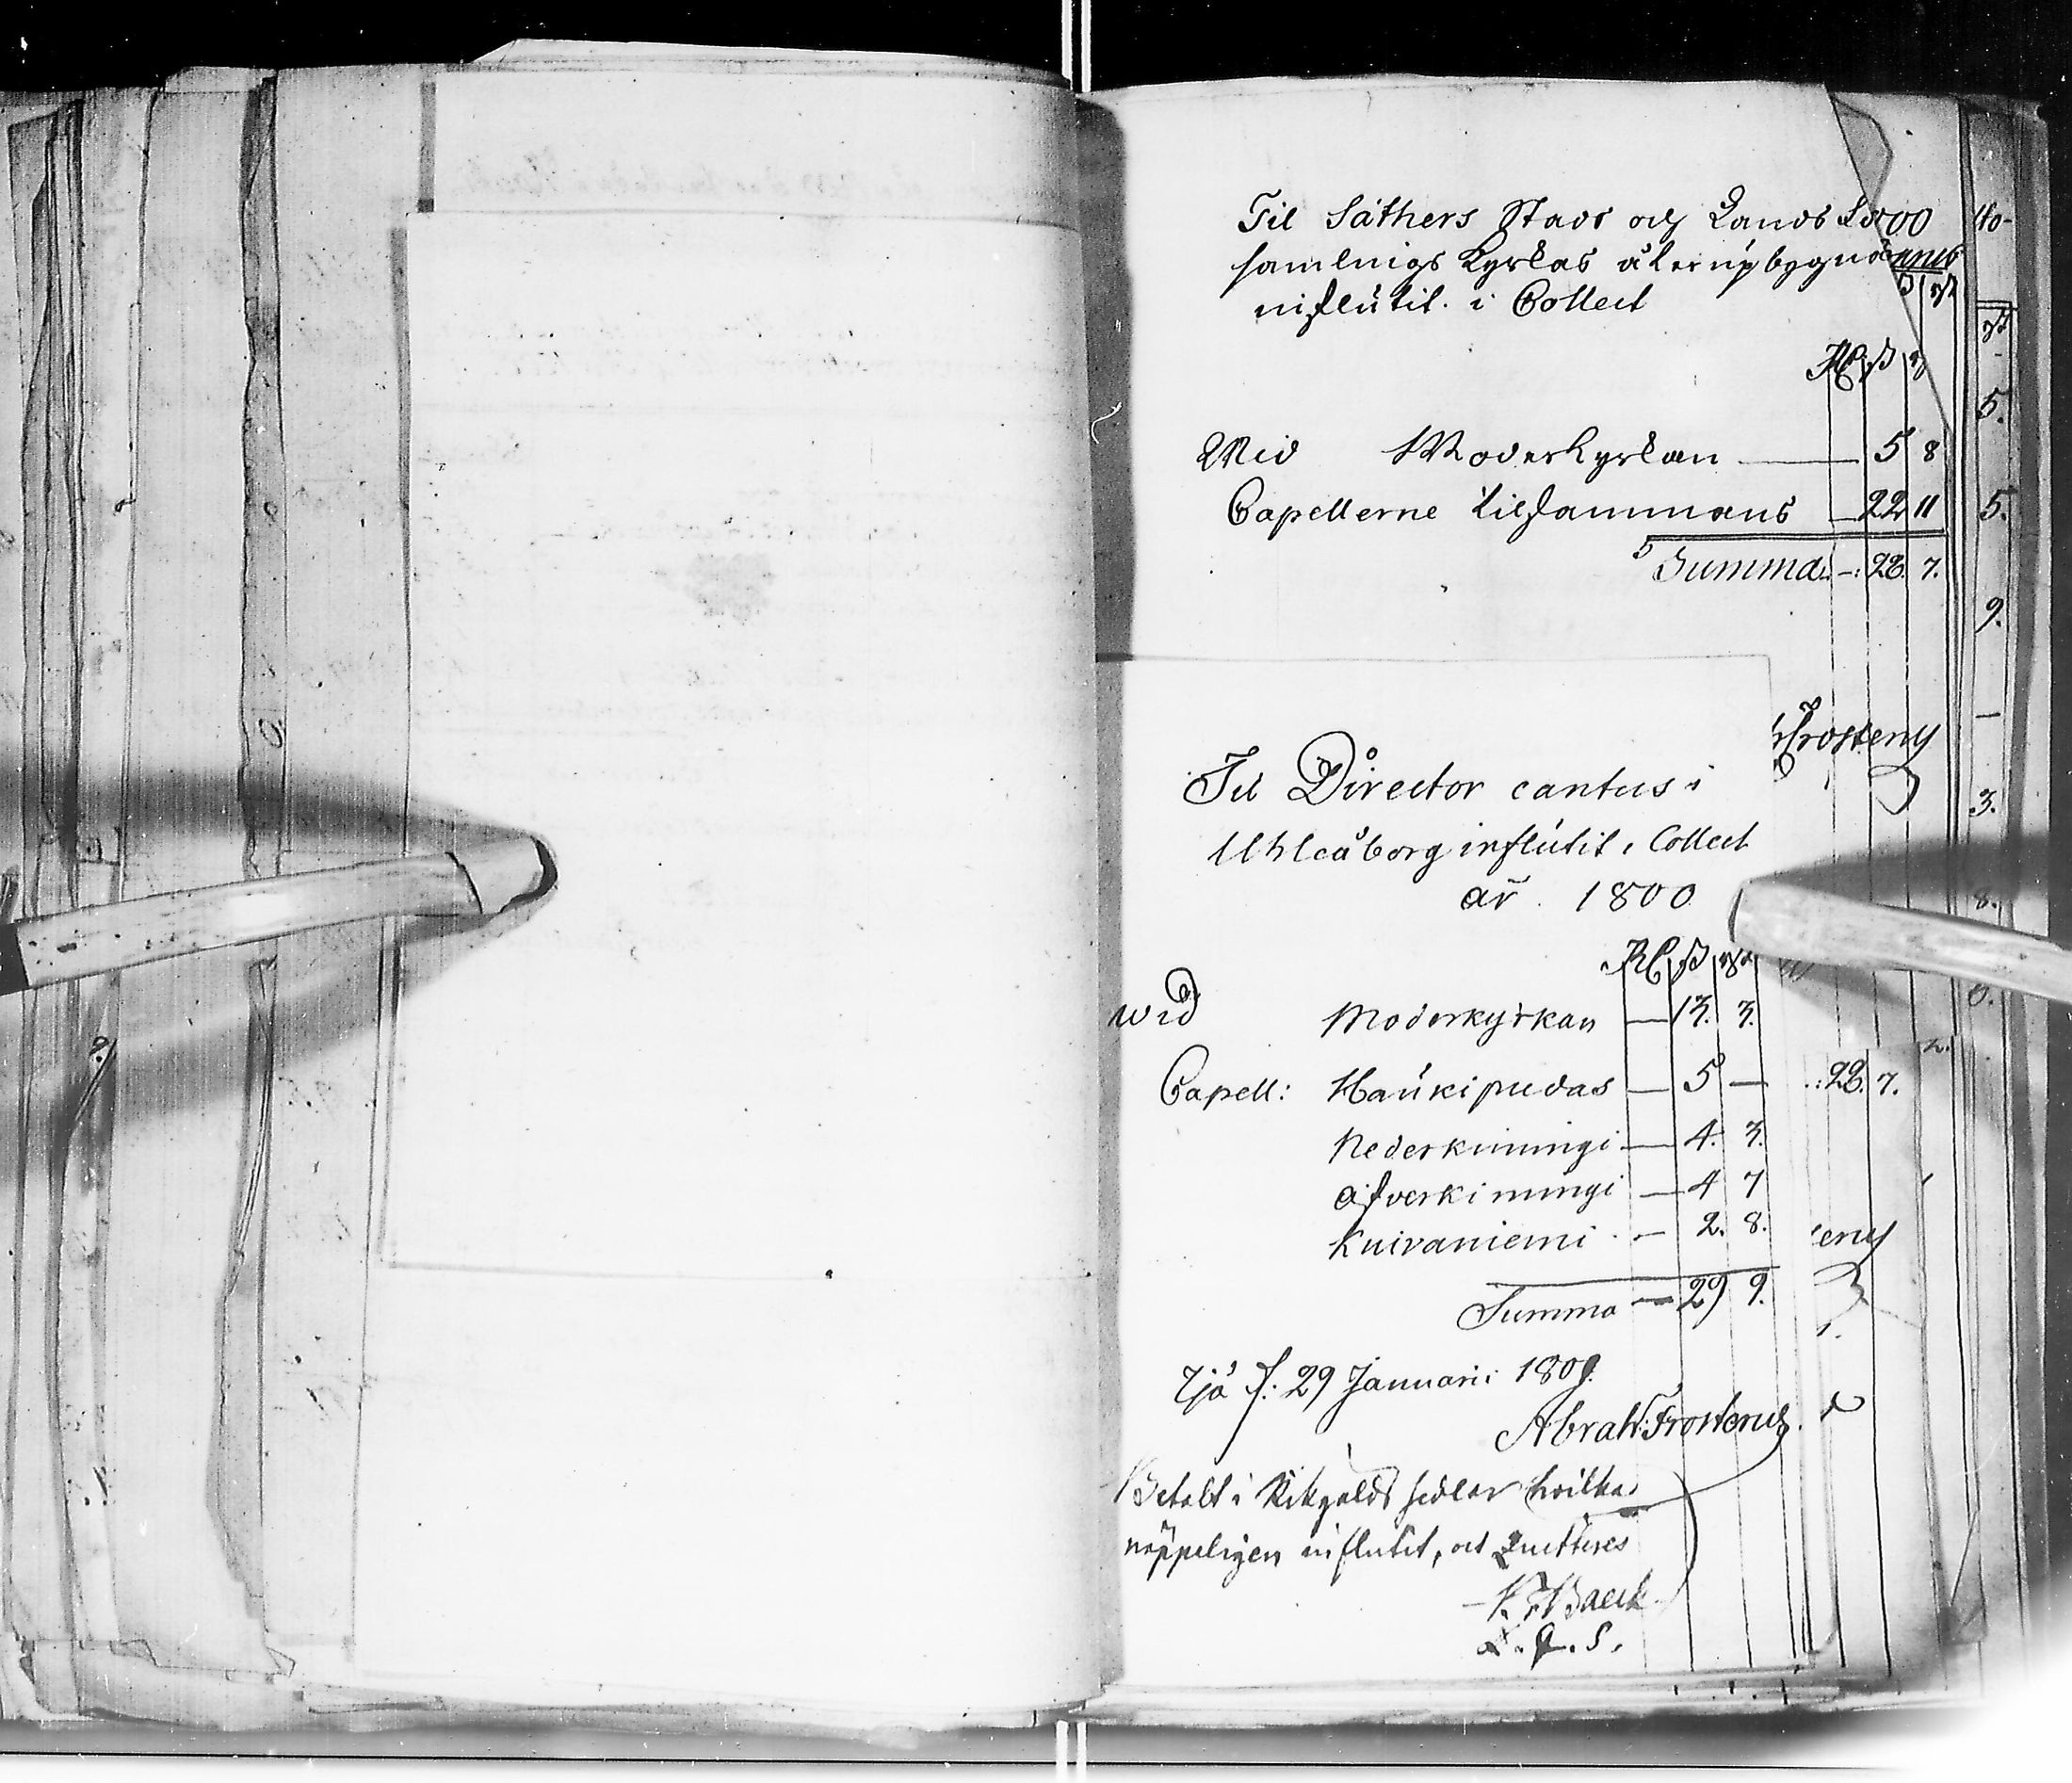 Til Säthers Stads och Lands För
samlings Kyrkas återupbygnad
influtit i Collect
Rd ß rst
Wid Moderkyrkan — 5 8
Capellerne tilsammans — 22 11
Summa — 28. 7.
Frosterus
Til Director cantus i
Uhleåborg influtit i Collect
år 1800
Rd ß rst
wid Moderkyrkan — 13. 3.
Capell: Haukipudas — 5 —
Nederkimingi — 4. 3.
Öfverkimingi — 4 7
Kuivaniemi — 2. 8.
Summa — 29 9.
Ijo d: 29 Januarii 1801.
Abrah: Frosterus.
Betalt i Riksgälds sedlar hvilka
näppeligen influtit, och quitteres
Baeck
L. q. S.
28. 7.
40-
rst
5.
5.
9.
—
3.
8.